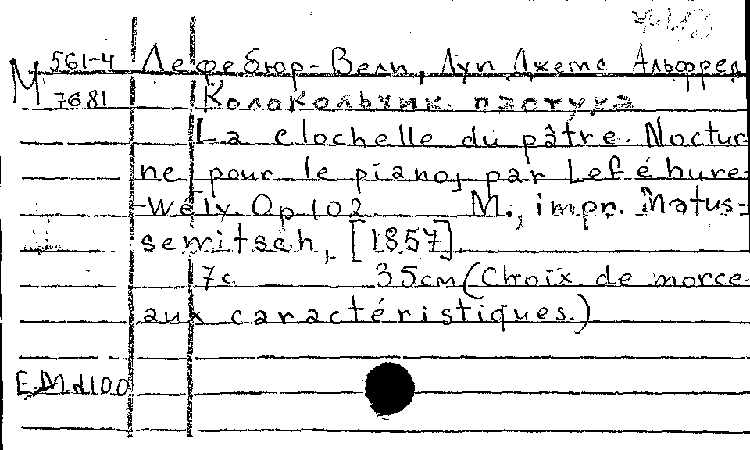 М 561-4 Лефебюр-Вели, Луи Джемс Альфред
7681 Колокольчик пастуха
La clochelle du pâtre. Noctur
ne pour le piano, par Lefébure-
-Wély. Op 102 M., impr. Matus-
sewitsch, [1857].
7c. 35cm (Choix de morce
aux caractéristiques.)